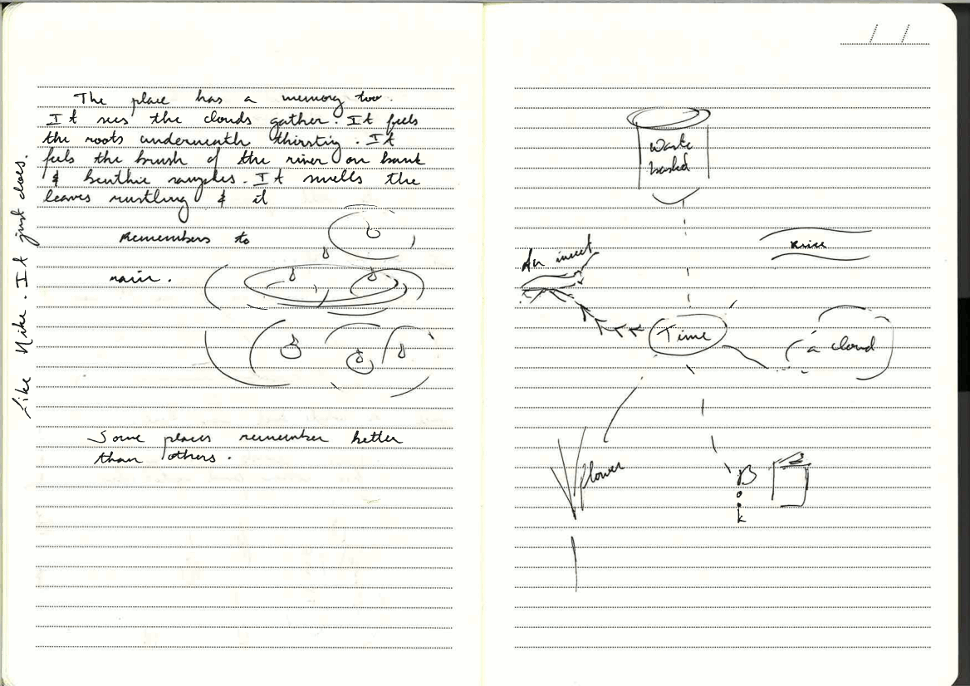 The place has a memory too.
It sees the clouds gather. It feels
the roots underneath thirsting. It
feels the brush of the river on bank
& benthic samples. It smells the
leaves rustling & it
Remembers to
rain.
Some places remember better
than others.
Like Nike. It just does.
Waste
basket
An insect
River
Time
a cloud
flower
B
o
o
k